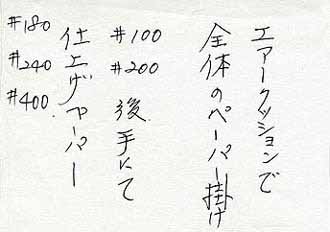 エアークッションで
全体のペーパー掛け
#100
#200
後手にて
仕上げペーパー
#180
#240
#400